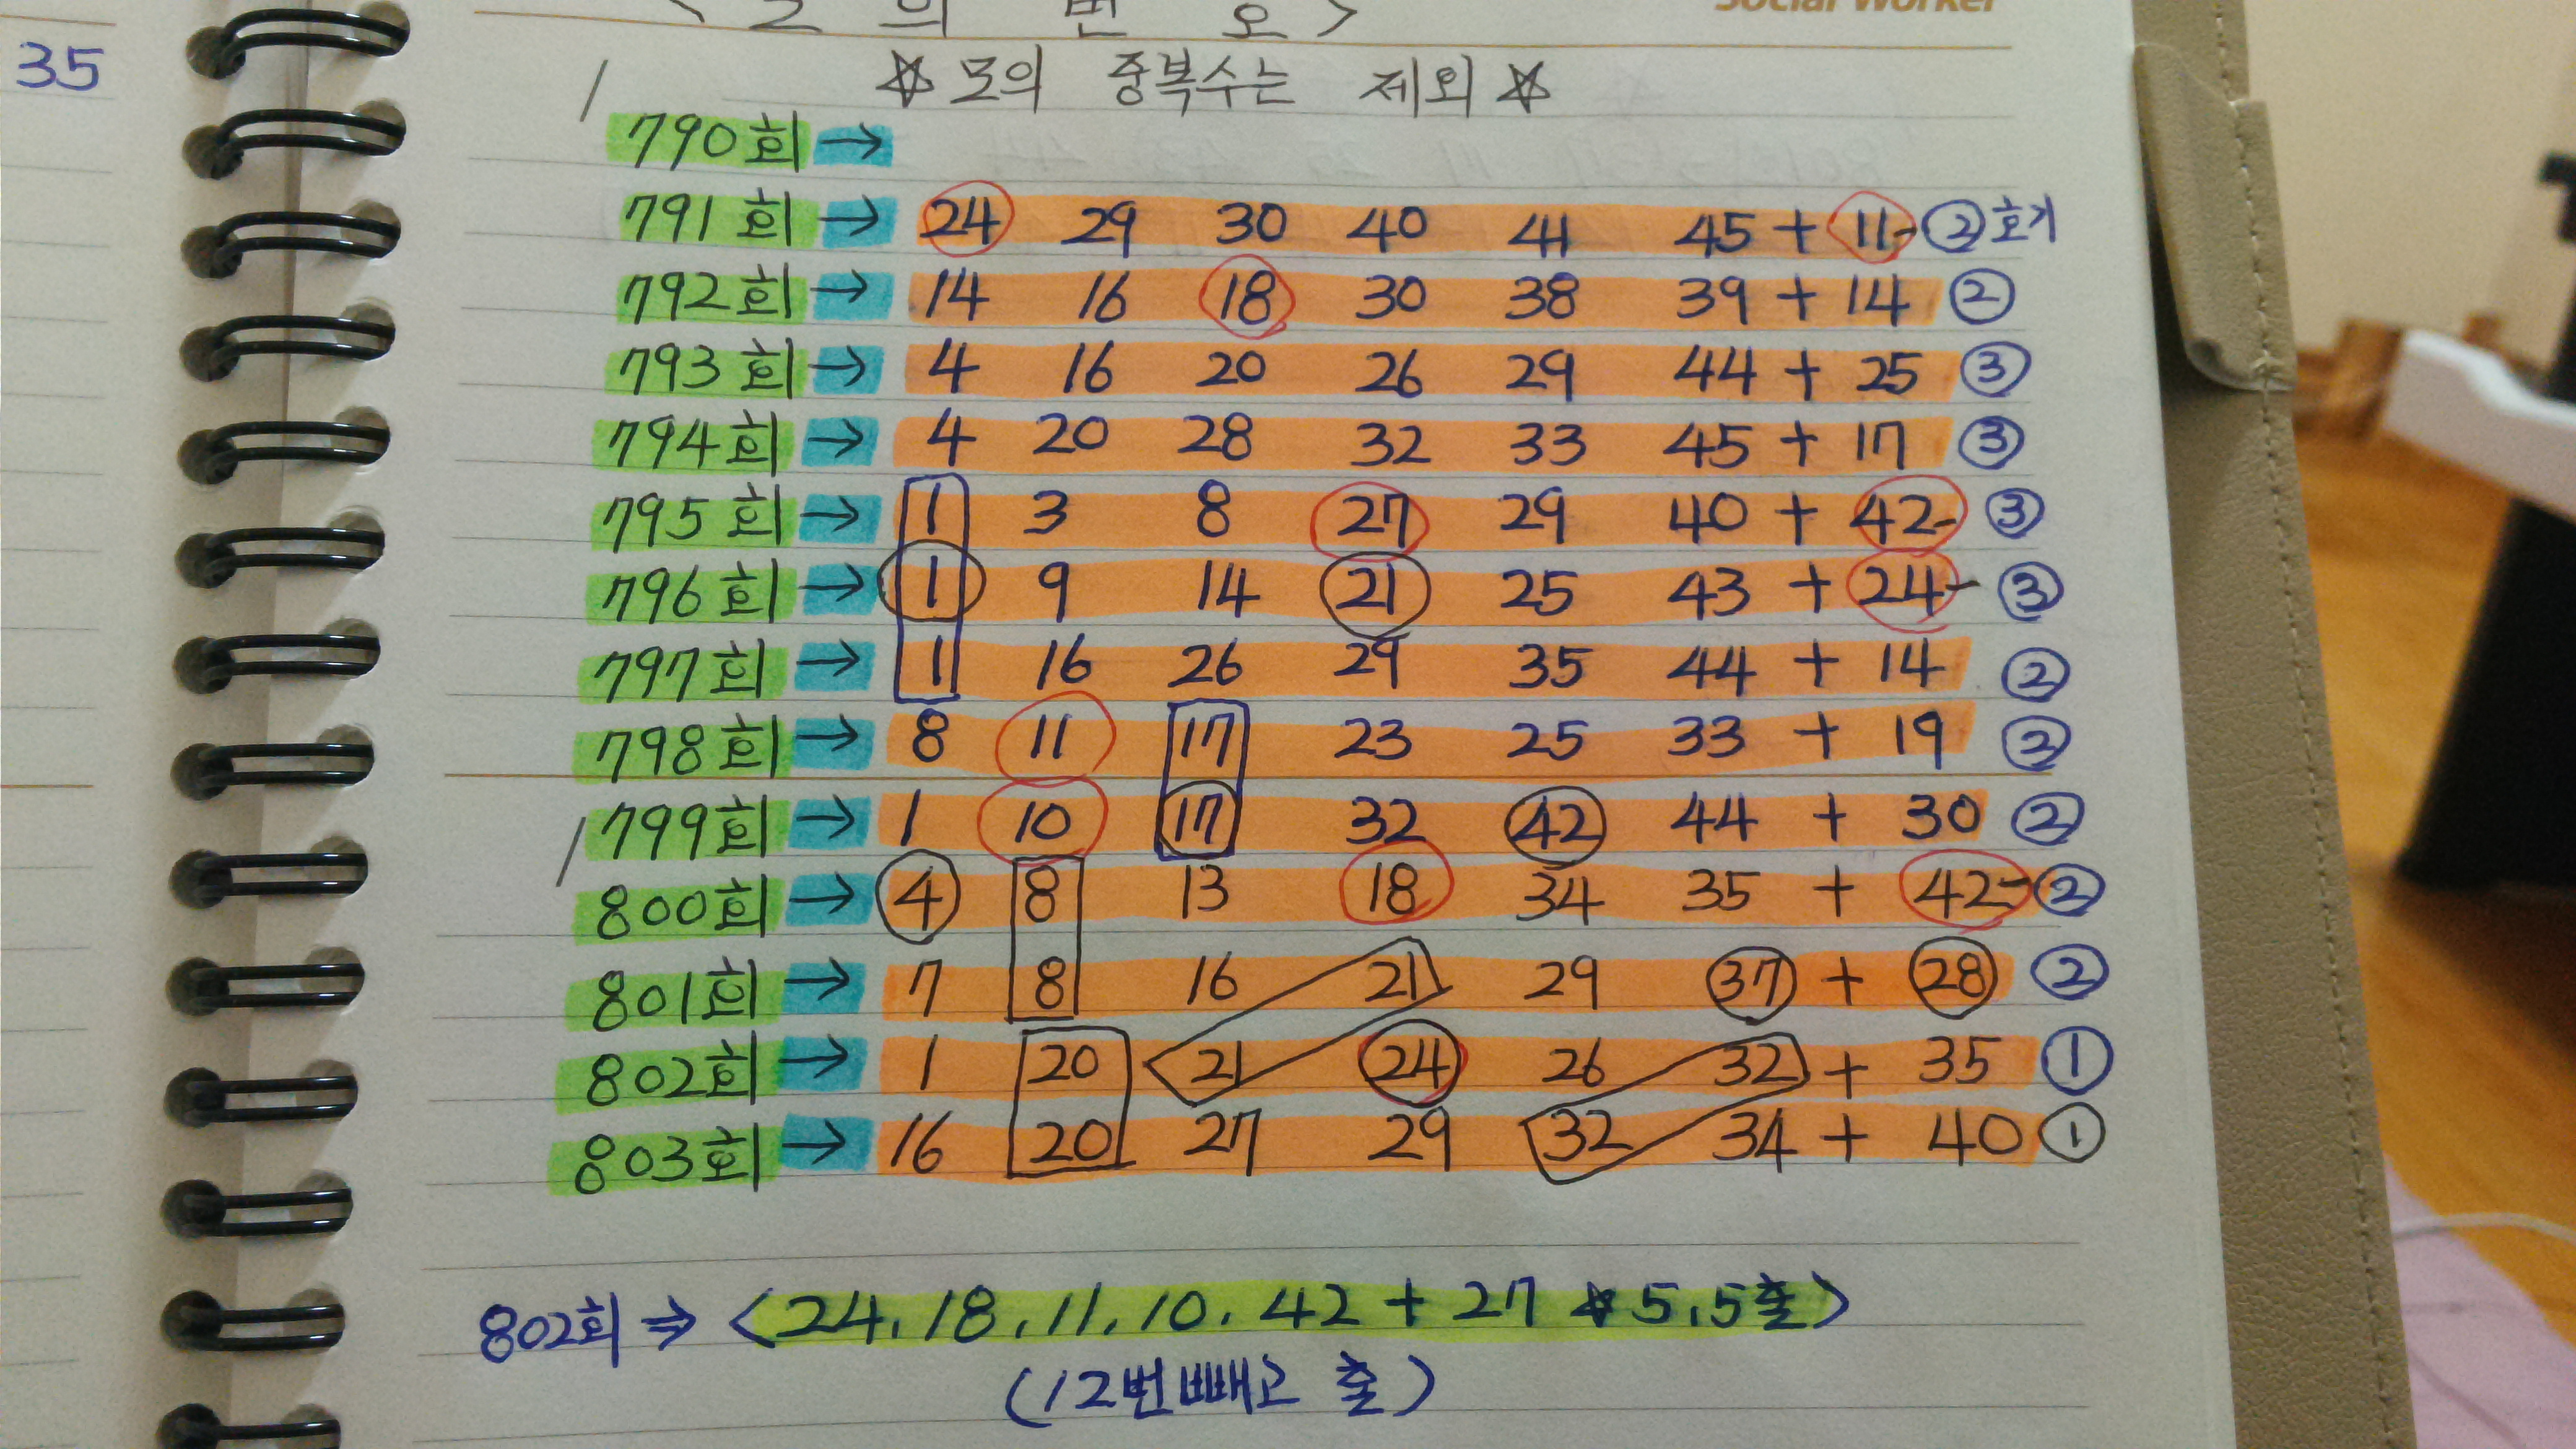 35
Social Worker
☆ 모의 중복수는 제외 ☆
790회 →
791회 → 24 29 30 40 41 45 + 11 - ② 효게
792회 → 14 16 18 30 38 39 + 14 ②
793회 → 4 16 20 26 29 44 + 25 ③
794회 → 4 20 28 32 33 45 + 17 ③
795회 → 1 3 8 27 29 40 + 42 - ③
796회 → 1 9 14 21 25 43 + 24 - ③
797회 → 1 16 26 29 35 44 + 14 ②
798회 → 8 11 17 23 25 33 + 19 ②
799회 → 1 10 17 32 42 44 + 30 ②
800회 → 4 8 13 18 34 35 + 42 - ②
801회 → 7 8 16 21 29 37 + 28 ②
802회 → 1 20 21 24 26 32 + 35 ①
803회 → 16 20 27 29 32 34 + 40 ①
802회 ⇒ <24, 18, 11, 10, 42 + 27 ★ 5, 5출>
(12번빼고 출)